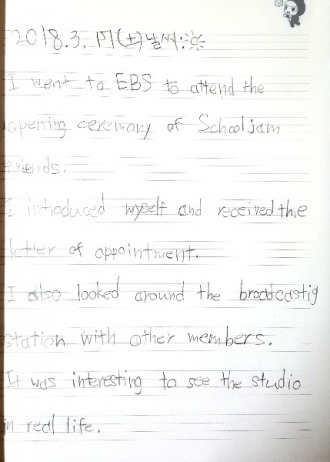 2018.3.17(土)날씨:☼
I went to EBS to attend the
opening ceremony of Schooljam
friends.
I introduced myself and received the
letter of appointment.
I also looked around the broadcastig
station with other members.
It was interesting to see the studio
in real life.